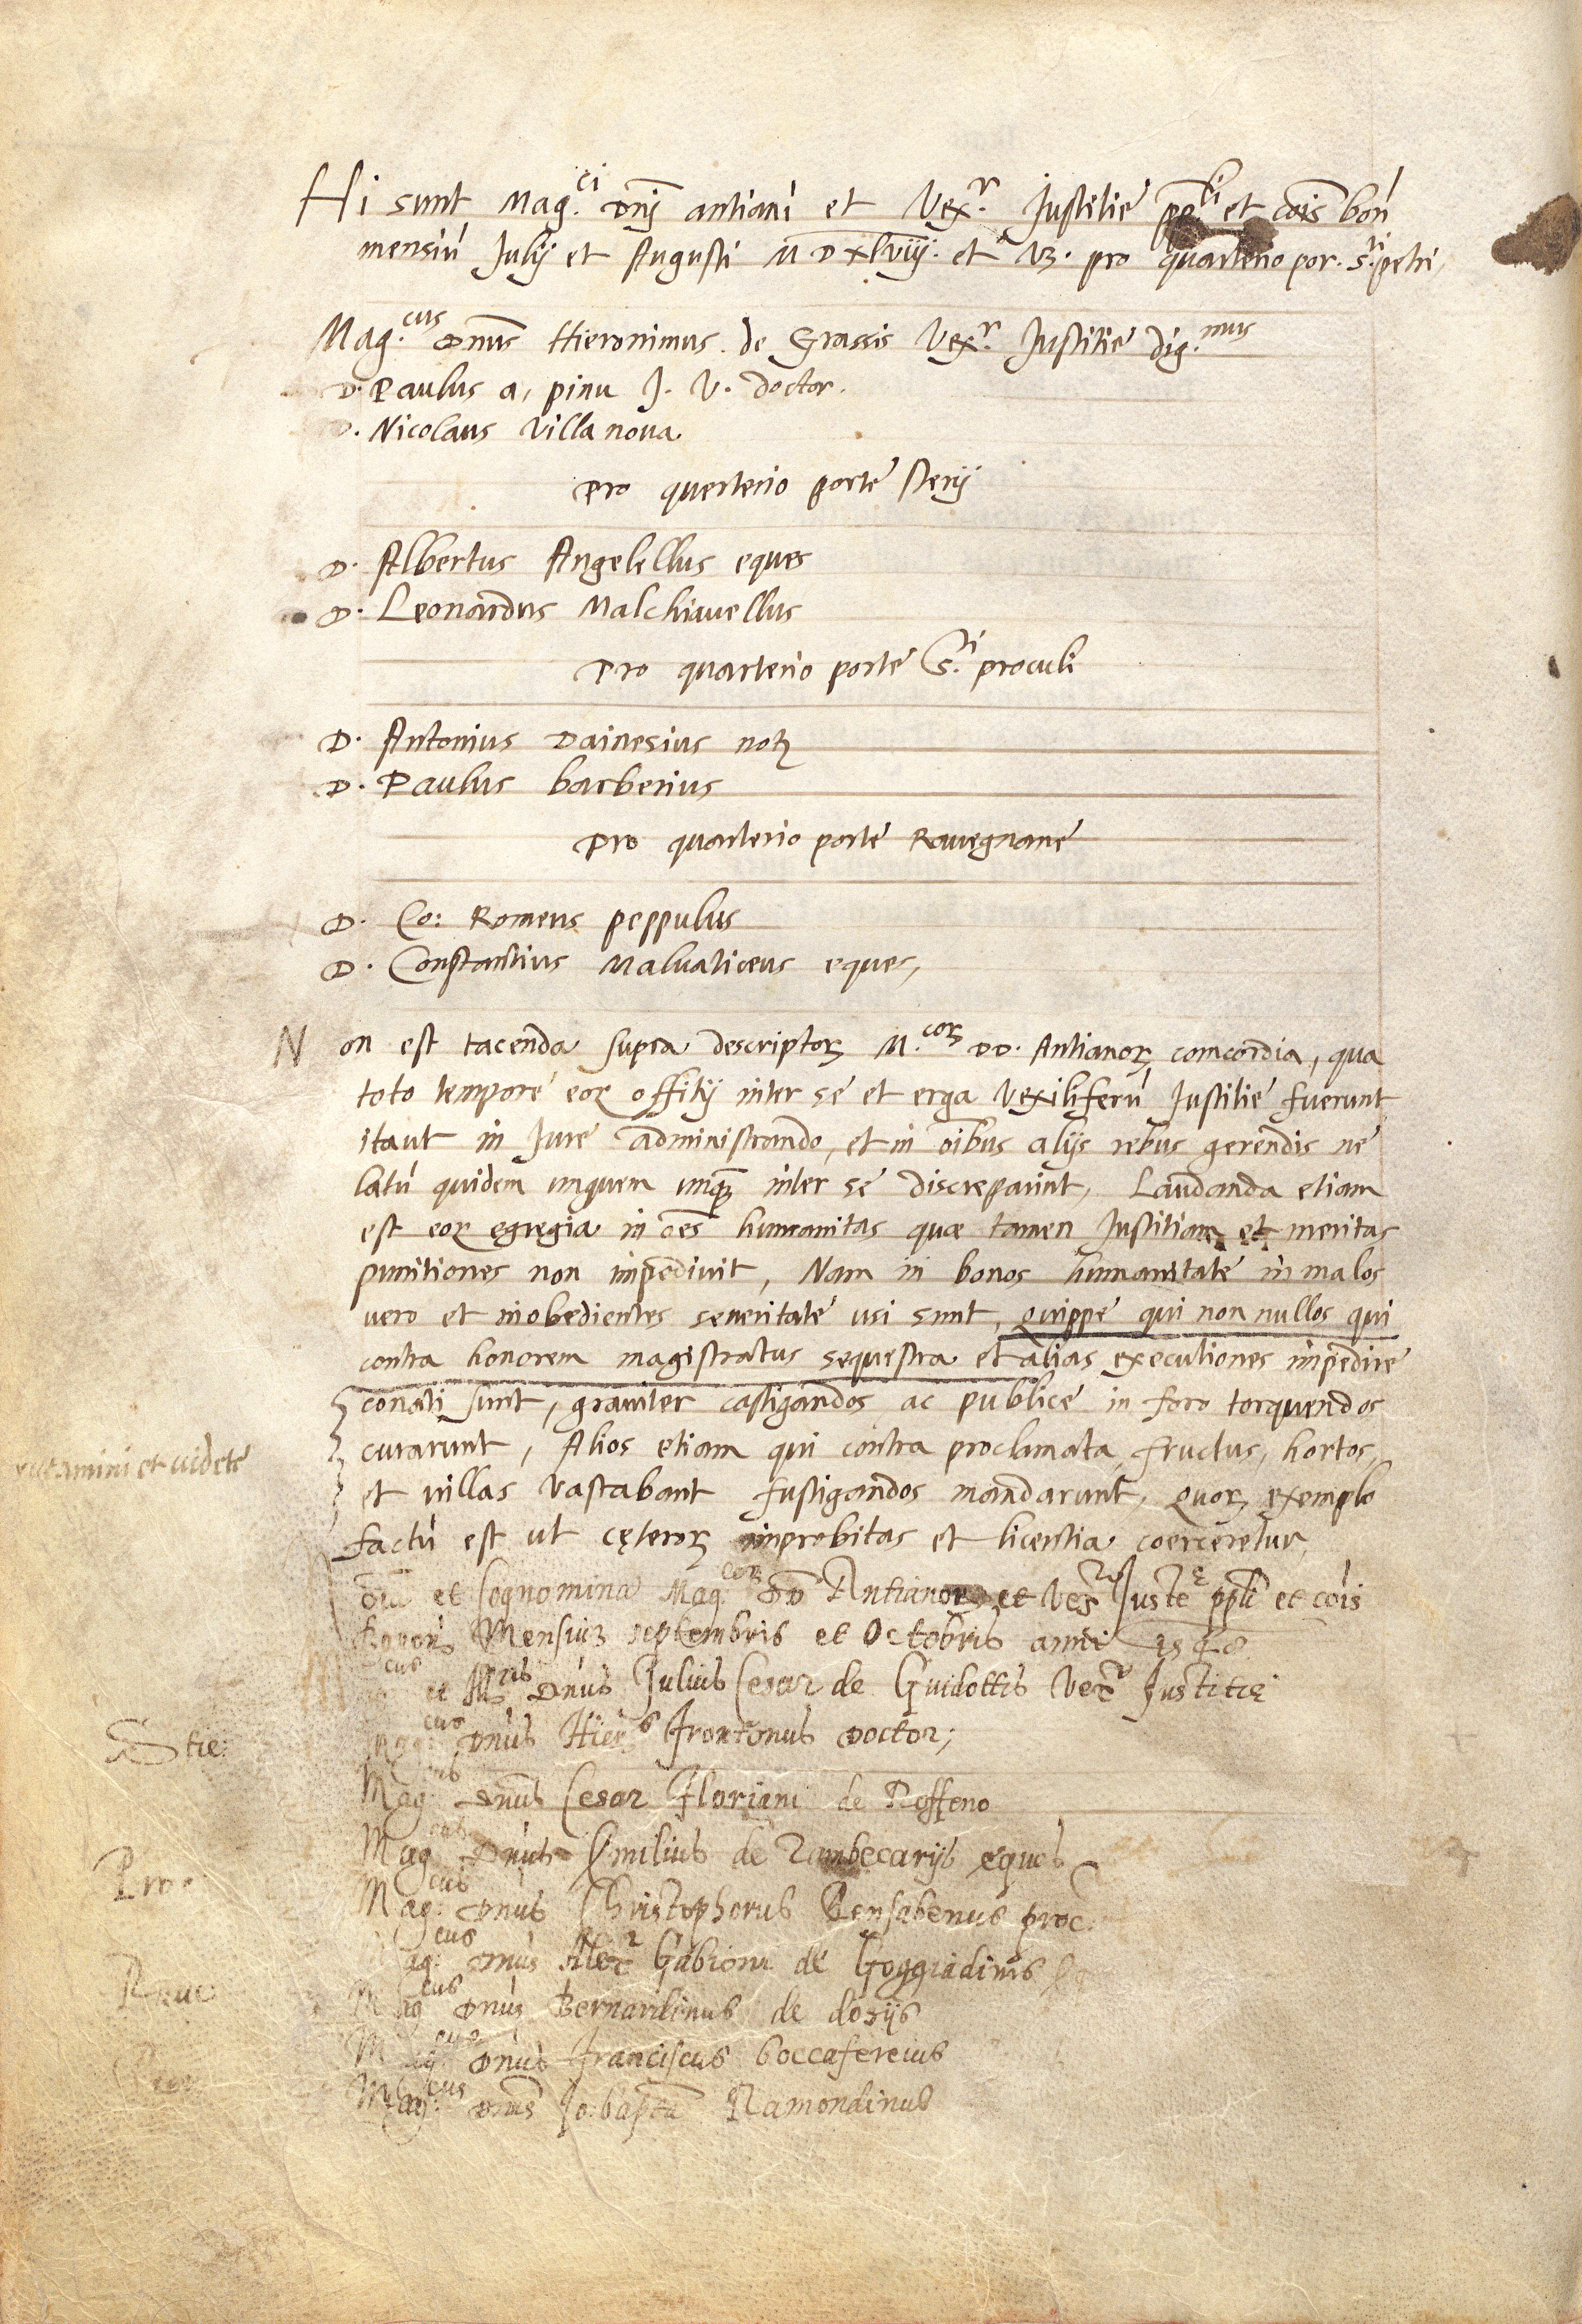 Hi sunt Mag.ci Dnj antiani et Vex.r Justitie ppli et cois bon
mensiu Julij et Augusti MDXLviij. et P.º pro quarterio por. s.ti petri,
Mag.cus Dnus Hieronimus de Grassis Vex.r Justitie dig.mus
D. Paulus a, pinu J. V. doctor.
D. Nicolaus Villa nova
Pro querterio porte sterij
D. Albertus Angelellus eques
D. Leonardus Malchiavellus
Pro quarterio porte S.ti proculi
D. Antonius Dainesius notꝫ
D. Paulus barberius
Pro quarterio porte Ravegnane
D. Co: Romeus peppulus
D. Constantius Malvaticeus eques,
Non est tacenda supra descriptoꝝ M.coꝝ DD. Antianoꝝ comcordia, qua
toto tempore eoꝝ offitij inter se et erga Vexiliferu Justitie fuerunt
itaut in Jure administrando, et in oibus alijs rebus gerendis ne
latu quidem unguem unqꝫ inter se discreparint, Laudanda etiam
est eoꝝ egregia in oes humanitas quæ tamen Justitiam et meritas
punitiones non impedivit, Nam in bonos humanitate in malos
vero et inobedientes severitate usi sunt, quippe qui non nullos qui
contra honorem magistratus sequestra et alias executiones impedire
conati sunt, graviter castigandos ac publice in foro torquendos
curarunt, Alios etiam qui contra proclamata fructus, hortos,
et villas vastabant fustigandos mandarunt, quoꝝ exemplo
factu est ut cęteroꝝ improbitas et licentia coerceretur,
et videte
et Cognomina Mag.coꝝ DD Antianoꝝ et Vex.r Juste ppli et cois
Bonon Mensium septembris et Octobris anni 1548
et Ill.ris Dnus Julius Cesar de Guidottis Vex.r Justitię
Stie:
Mag.cus Dnus Hier.s frontonus Doctor;
Mag.cus Dnus Cesar Floriani de Roffeno
Pro:
Mag.cus Dnus Emilius de Zambecarijs eques
Mag.cus Dnus Christophorus Bensabenus proc.
Rave
Mag.cus Dnus Alex.r de Goggiadinis
Mag.cus Dnus Bernardinus de dosijs
Mag.cus Dnus Franciscus boccafereius
Mag.cus Dnus Jo: bapta Ramondinus